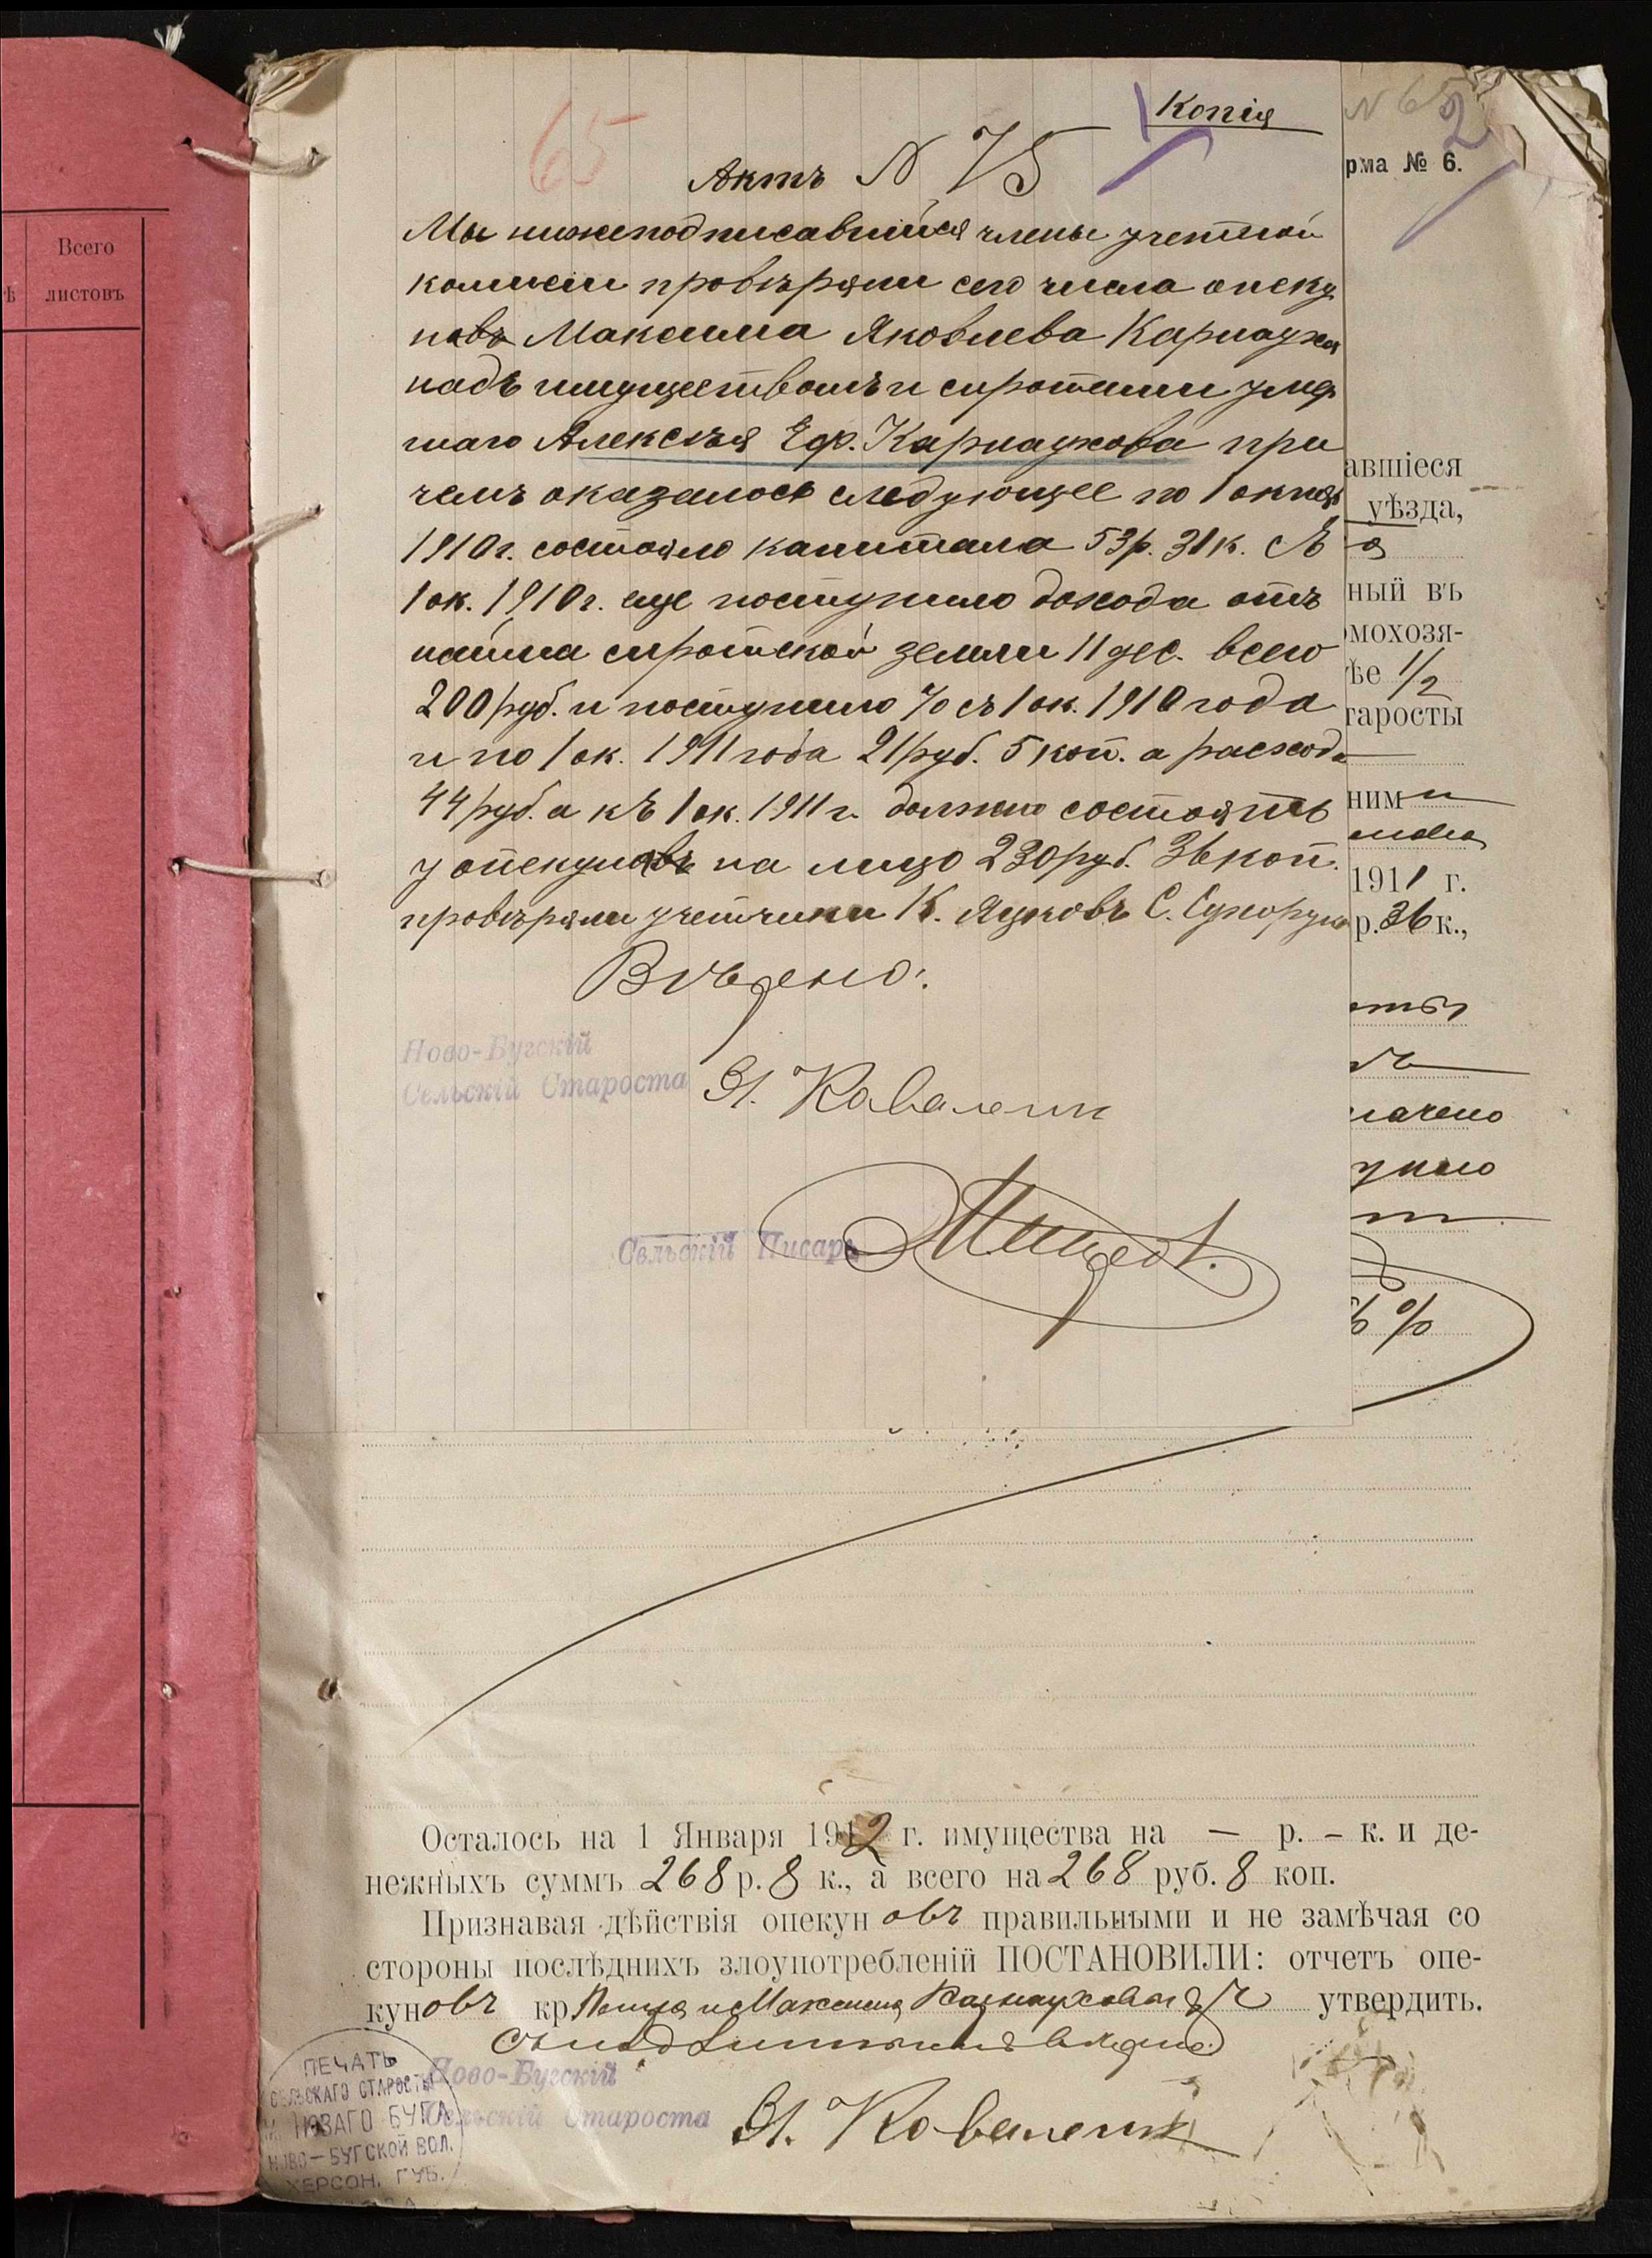 Всего
листовъ
ѣ
65
Копія
N 65
2
рма № 6.
Актъ N 75
Мы нижеподписавшийся члены учетной
комисии провѣряли сего числа опеку
новъ Максима Яковлева Карнауха
надъ имуществомъ и сиротами умер
шаго Алексѣя Еф. Карнаухова при
чемъ оказалось следующее по 1 октяб
1910 г. состояло капитала 53 р. 31 к. Съ
1 ок. 1910 г. еще поступило дохода отъ
найма сиротской земли 11 дес. всего
200 руб. и поступило % съ 1 ок. 1910 года
и по 1 ок. 1911 года 21 руб. 5 коп. а расхода
44 руб. а къ 1 ок. 1911 г. должно состоять
у опекуновъ на лицо 230 руб. 36 коп.
провѣряли учетчики К. Яцковъ С. Сухорук
Вѣрно:
Ново-Бугскій
Сельскій Староста
Сельскій Писарь
авшіеся
уѣзда,
ный въ
мохозя-
ѣе 1/2
таросты
ним и
1911 г.
р. 36 к.,
лачено
%
Осталось на 1 Января 1912 г. имущества на — р. - к. и де-
нежныхъ суммъ 268 р. 8 к., а всего на 268 руб. 8 коп.
Признавая дѣйствія опекун овъ правильными и не замѣчая со
стороны послѣднихъ злоупотребленій ПОСТАНОВИЛИ: отчетъ опе-
кун овъ кр и Максима Карнауховыхъ утвердить.
Ново-Бугскій
Сельскій Староста
ПЕЧАТЬ
СЕЛЬСКАГО СТАРОСТЫ
НОВАГО БУГА
НОВО-БУГСКОЙ ВОЛ.
ХЕРСОН. ГУБ.